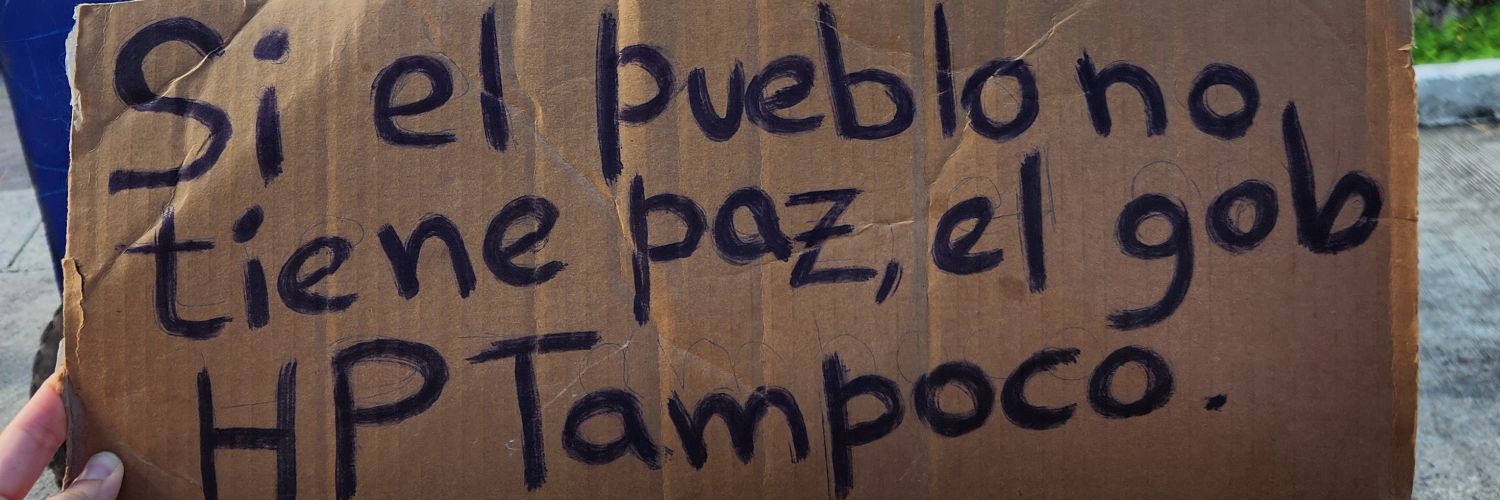 Si el pueblo no
tiene paz, el gob
HP Tampoco.